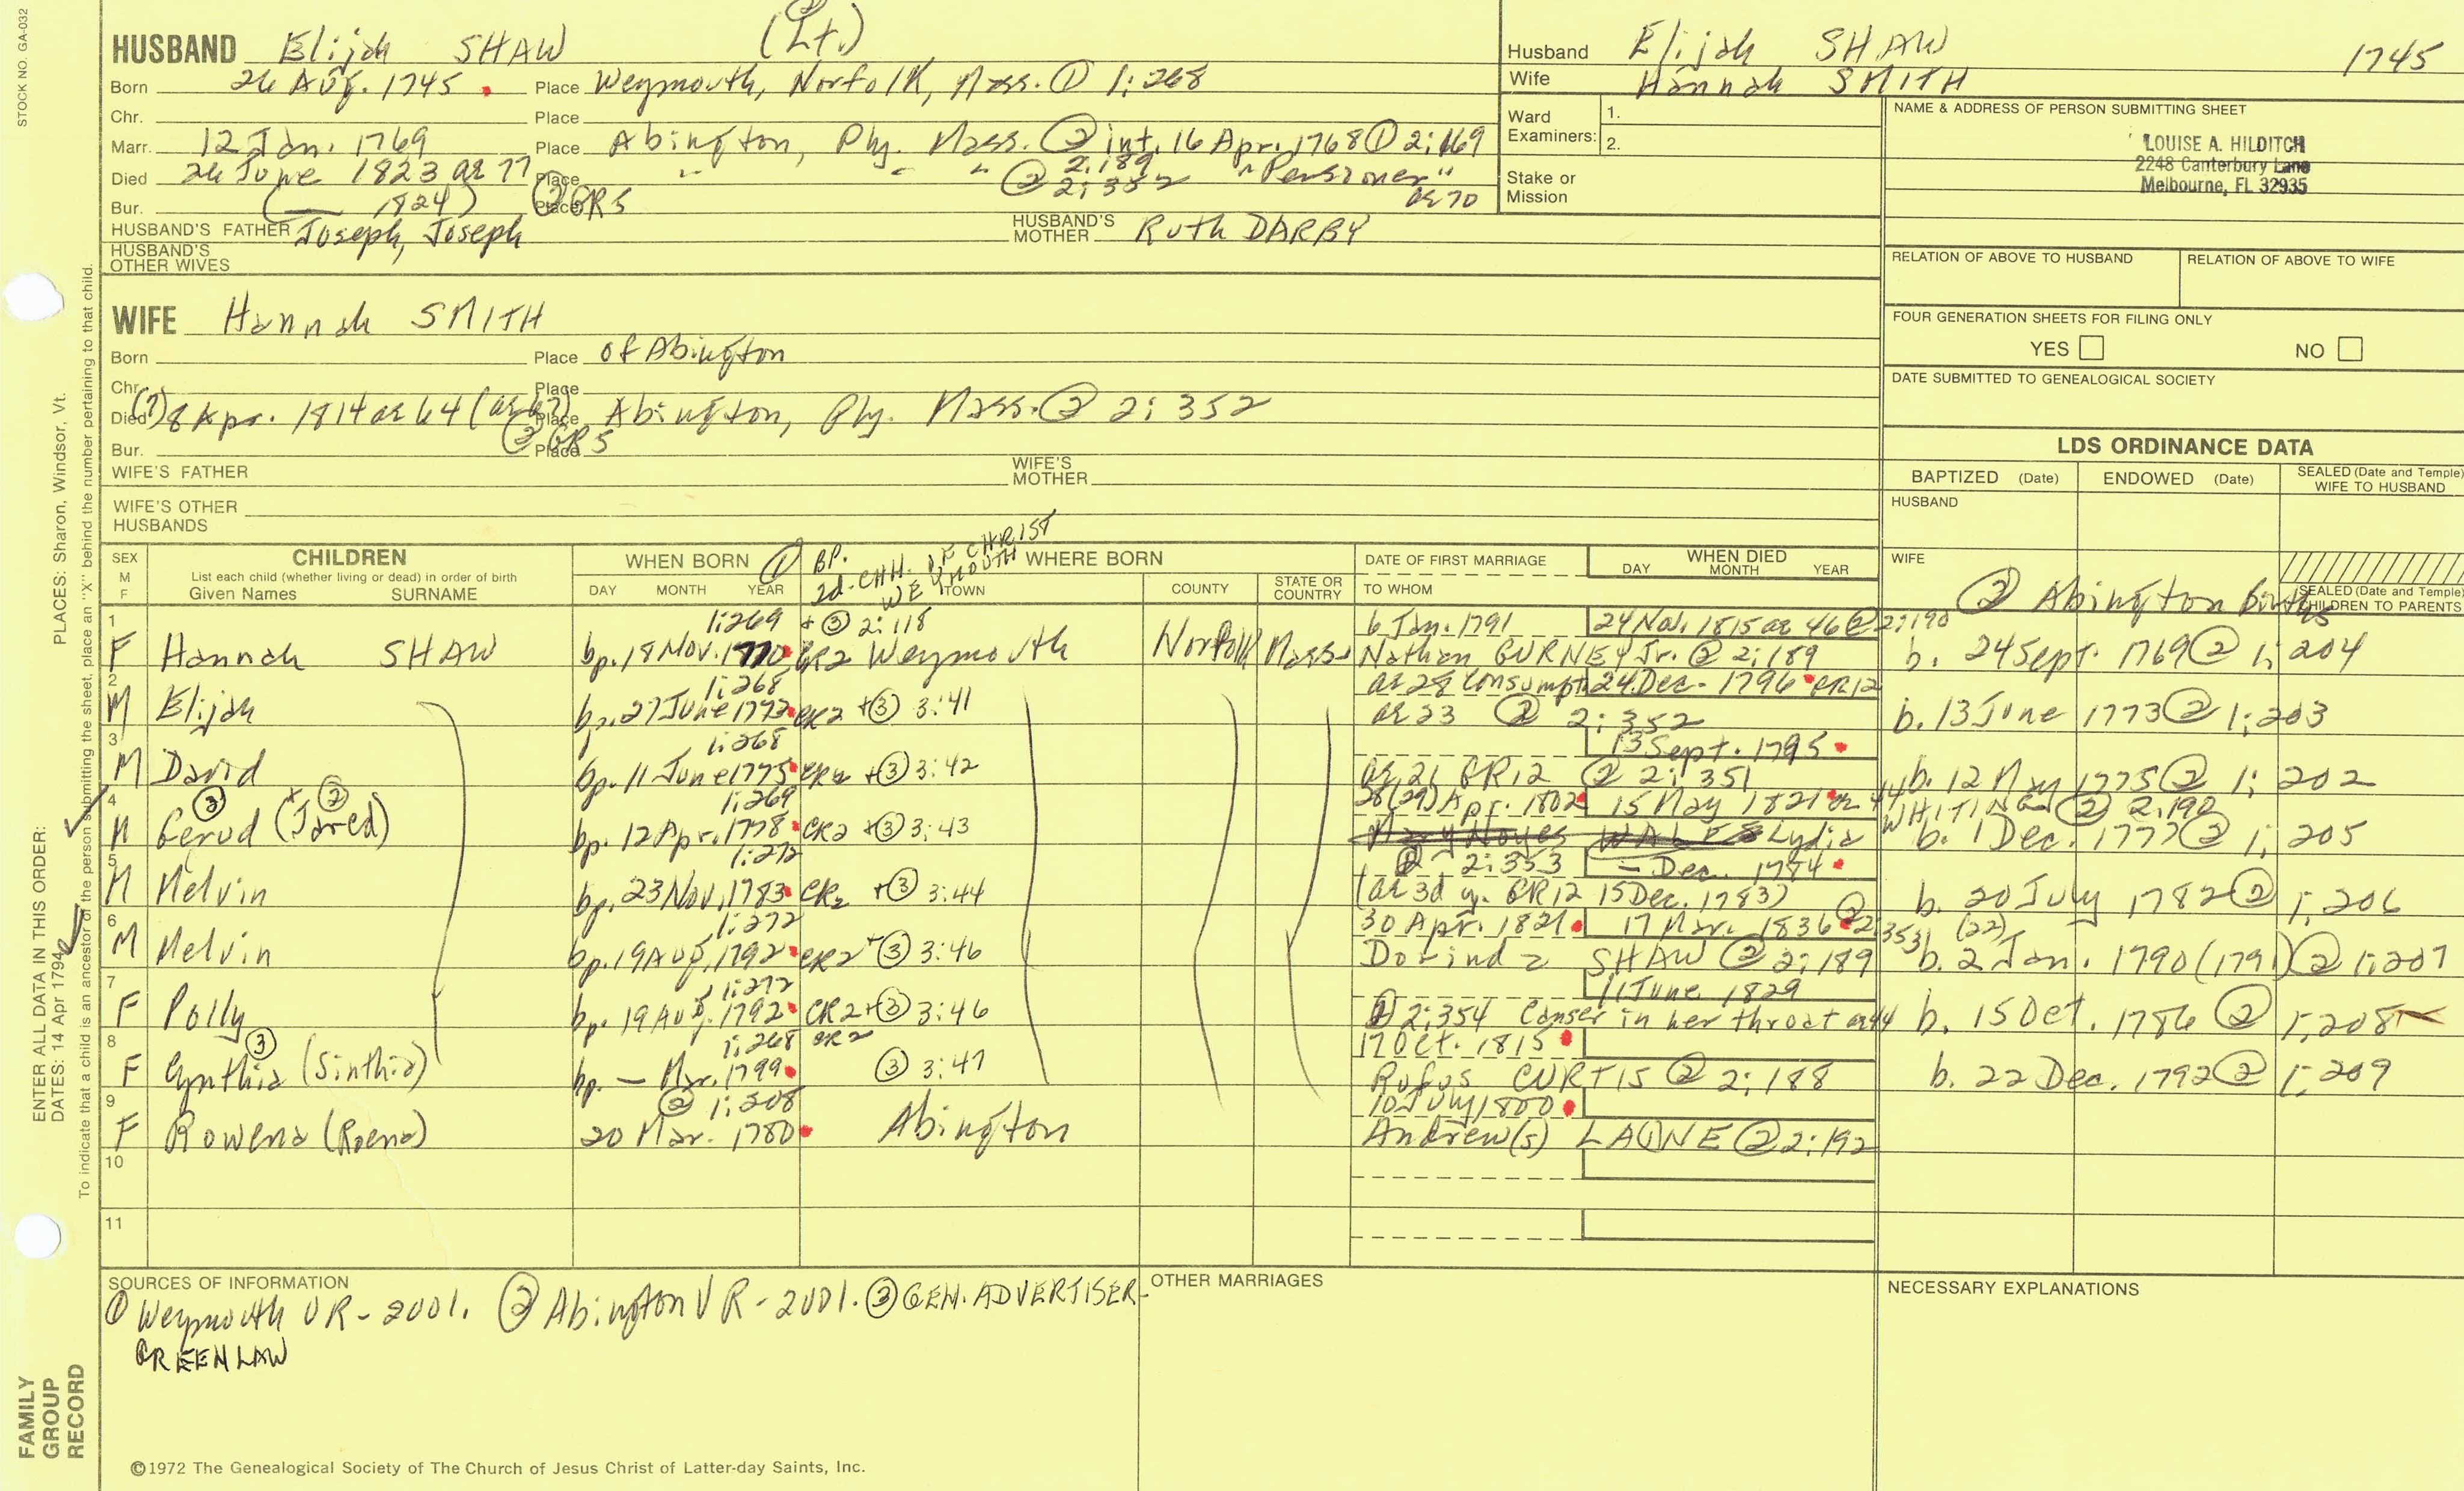 STOCK NO. GA-032
HUSBAND Elijah SHAW (Lt.)
Born 26 Aug. 1745 Place Weymouth, Norfolk, Mass. ① 1:268
Chr. Place
Marr. 12 Jan. 1769 Place Abington, Ply. Mass. ② int. 16 Apr. 1768 ① 2:169
2:189
Died 26 June 1823 ae 77 Place " " " ② 2:352 "Pensioner"
Bur. ( — 1824) Place ② GR5 ae 70
HUSBAND'S FATHER Joseph, Joseph HUSBAND'S MOTHER Ruth DARBY
HUSBAND'S OTHER WIVES
WIFE Hannah SMITH
Born Place of Abington
Chr. Place
Died (?) 8 Apr. 1814 ae 64 (ae 67) Place Abington, Ply. Mass. ② 2:352
Bur. Place ② GR5
WIFE'S FATHER WIFE'S MOTHER
WIFE'S OTHER HUSBANDS
Husband Elijah SHAW 1745
Wife Hannah SMITH
Ward Examiners: 1.
2.
Stake or Mission
NAME & ADDRESS OF PERSON SUBMITTING SHEET
LOUISE A. HILDITCH
2248 Canterbury Lane
Melbourne, FL 32935
RELATION OF ABOVE TO HUSBAND RELATION OF ABOVE TO WIFE
FOUR GENERATION SHEETS FOR FILING ONLY
YES NO
DATE SUBMITTED TO GENEALOGICAL SOCIETY
LDS ORDINANCE DATA
BAPTIZED (Date) ENDOWED (Date) SEALED (Date and Temple) WIFE TO HUSBAND
HUSBAND
WIFE
SEALED (Date and Temple) CHILDREN TO PARENTS
② Abington births
SEX M F CHILDREN
List each child (whether living or dead) in order of birth
Given Names SURNAME
WHEN BORN ① DAY MONTH YEAR
BP. 2d. CHH. OF CHRIST WEYMOUTH
WHERE BORN TOWN COUNTY STATE OR COUNTRY
DATE OF FIRST MARRIAGE TO WHOM
WHEN DIED DAY MONTH YEAR
1 1:269 + ③ 2:118 6 Jan. 1791 24 Nov. 1815 ae 46 ② 2:190
F Hannah SHAW bp. 18 Nov. 1770 CR2 Weymouth Norfolk Mass. Nathan GURNEY Jr. ② 2:189 b. 24 Sept. 1769 ② 1:204
2 1:268 ae 28 consumpt. 24 Dec. 1796 CR12
M Elijah bp. 27 June 1773 CR2 + ③ 3:41 ae 23 ② 2:352 b. 13 June 1773 ② 1:203
3 1:268 13 Sept. 1795
M David bp. 11 June 1775 CR2 + ③ 3:42 ae 21 CR12 ② 2:351 b. 12 May 1775 ② 1:202
4 1:269 28(29) Apr. 1802 15 May 1821 ae 44 WHITING ② 2:190
M Gerud ③ (Jared) ② bp. 12 Apr. 1778 CR2 + ③ 3:43 Lydia b. 1 Dec. 1777 ② 1:205
5 1:272 ② 2:353 — Dec. 1784
M Melvin bp. 23 Nov. 1783 CR2 + ③ 3:44 (ae 3d y. CR12 15 Dec. 1783) b. 20 July 1782 ② 1:206
6 1:272 30 Apr. 1821 17 Mar. 1836 ② 2:353 (22)
M Melvin bp. 19 Aug. 1792 CR2 + ③ 3:46 Dorinda SHAW ② 2:189 b. 2 Jan. 1790 (1791) ② 1:207
7 1:272 11 June 1829
F Polly bp. 19 Aug. 1792 CR2 + ③ 3:46 ② 2:354 Canser in her throat ae 44 b. 15 Oct. 1786 ② 1:208
8 1:268 CR2 17 Oct. 1815
F Cynthia ③ (Sinthia) bp. — Mar. 1799 ③ 3:47 Rufus CURTIS ② 2:188 b. 22 Dec. 1792 ② 1:209
9 ② 1:208 10 July 1800
F Rowena (Roena) 20 Mar. 1780 Abington Andrew(s) LA(I)NE ② 2:192
10
11
SOURCES OF INFORMATION
① Weymouth VR - 2001. ② Abington VR - 2001. ③ GEN. ADVERTISER-
GREENLAW
OTHER MARRIAGES
NECESSARY EXPLANATIONS
©1972 The Genealogical Society of The Church of Jesus Christ of Latter-day Saints, Inc.
FAMILY GROUP RECORD
ENTER ALL DATA IN THIS ORDER: PLACES: Sharon, Windsor, Vt.
DATES: 14 Apr 1794
To indicate that a child is an ancestor of the person submitting the sheet, place an "X" behind the number pertaining to that child.